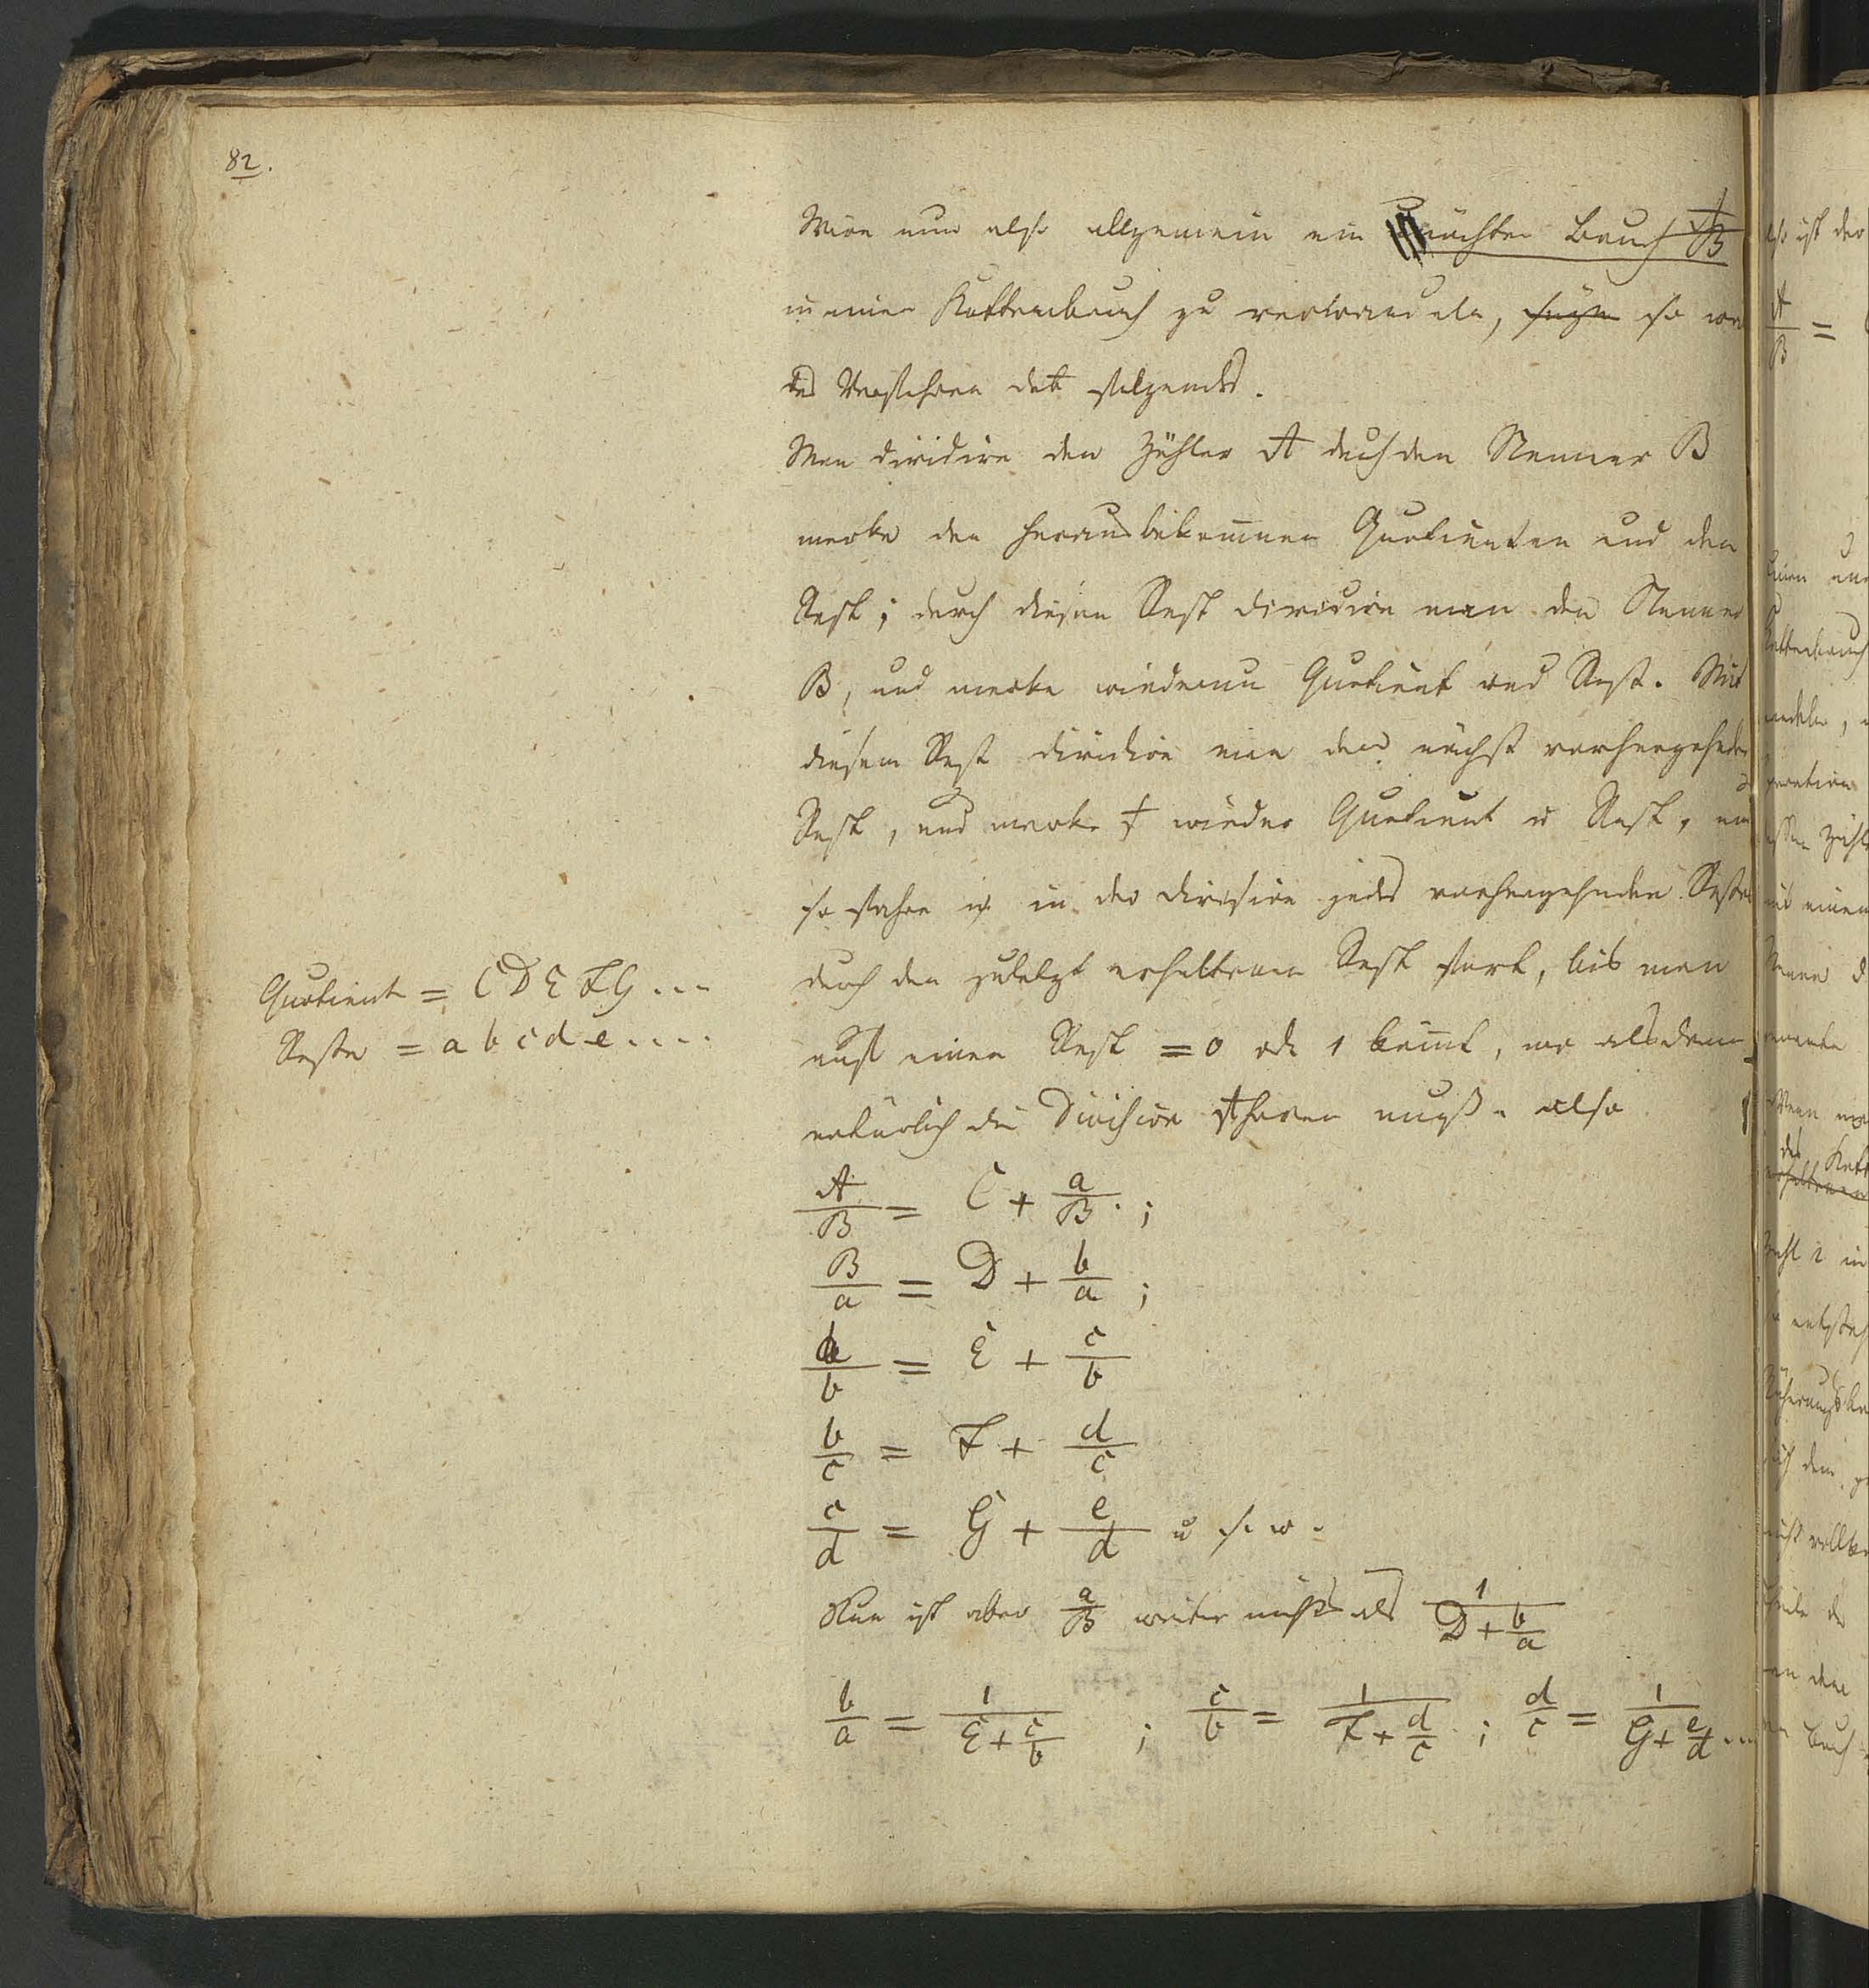 82.
Wäre nun also allgemein ein unächter Bruch A/B
in einen Kettenbruch zu verwandeln, so wä
das Verfahren folgendes.
Man dividire den Zähler A durch den Nenner B
merke den herausbekom̅nen Quotienten und den
Rest; durch diesen Rest dividire man den Nenner
B, und merke wiederum Quotient und Rest. Mit
diesem Rest dividire man den nächst vorhergehenden
Rest, und merke wieder Quotient u Rest, und
so fahre in der Division jedes vorhergehenden Restes
durch den zuletzt erhaltenen Rest fort, bis man
auf einen Rest = 0 od. 1 köm̅t, wo alsdann
natürlich die Division aufhören muß. also
Quotient = C D E F G ...
Reste = a b c d e ....
A/B = C + a/B ;
B/a = D + b/a ;
a/b = E + c/b
b/c = F + d/c
c/d = G + e/d u s. w.
Nun ist aber a/B weiter nichts als 1/(D + b/a)
b/a = 1/(E + c/b) ; c/b = 1/(F + d/c) ; d/c = 1/(G + e/d) ...